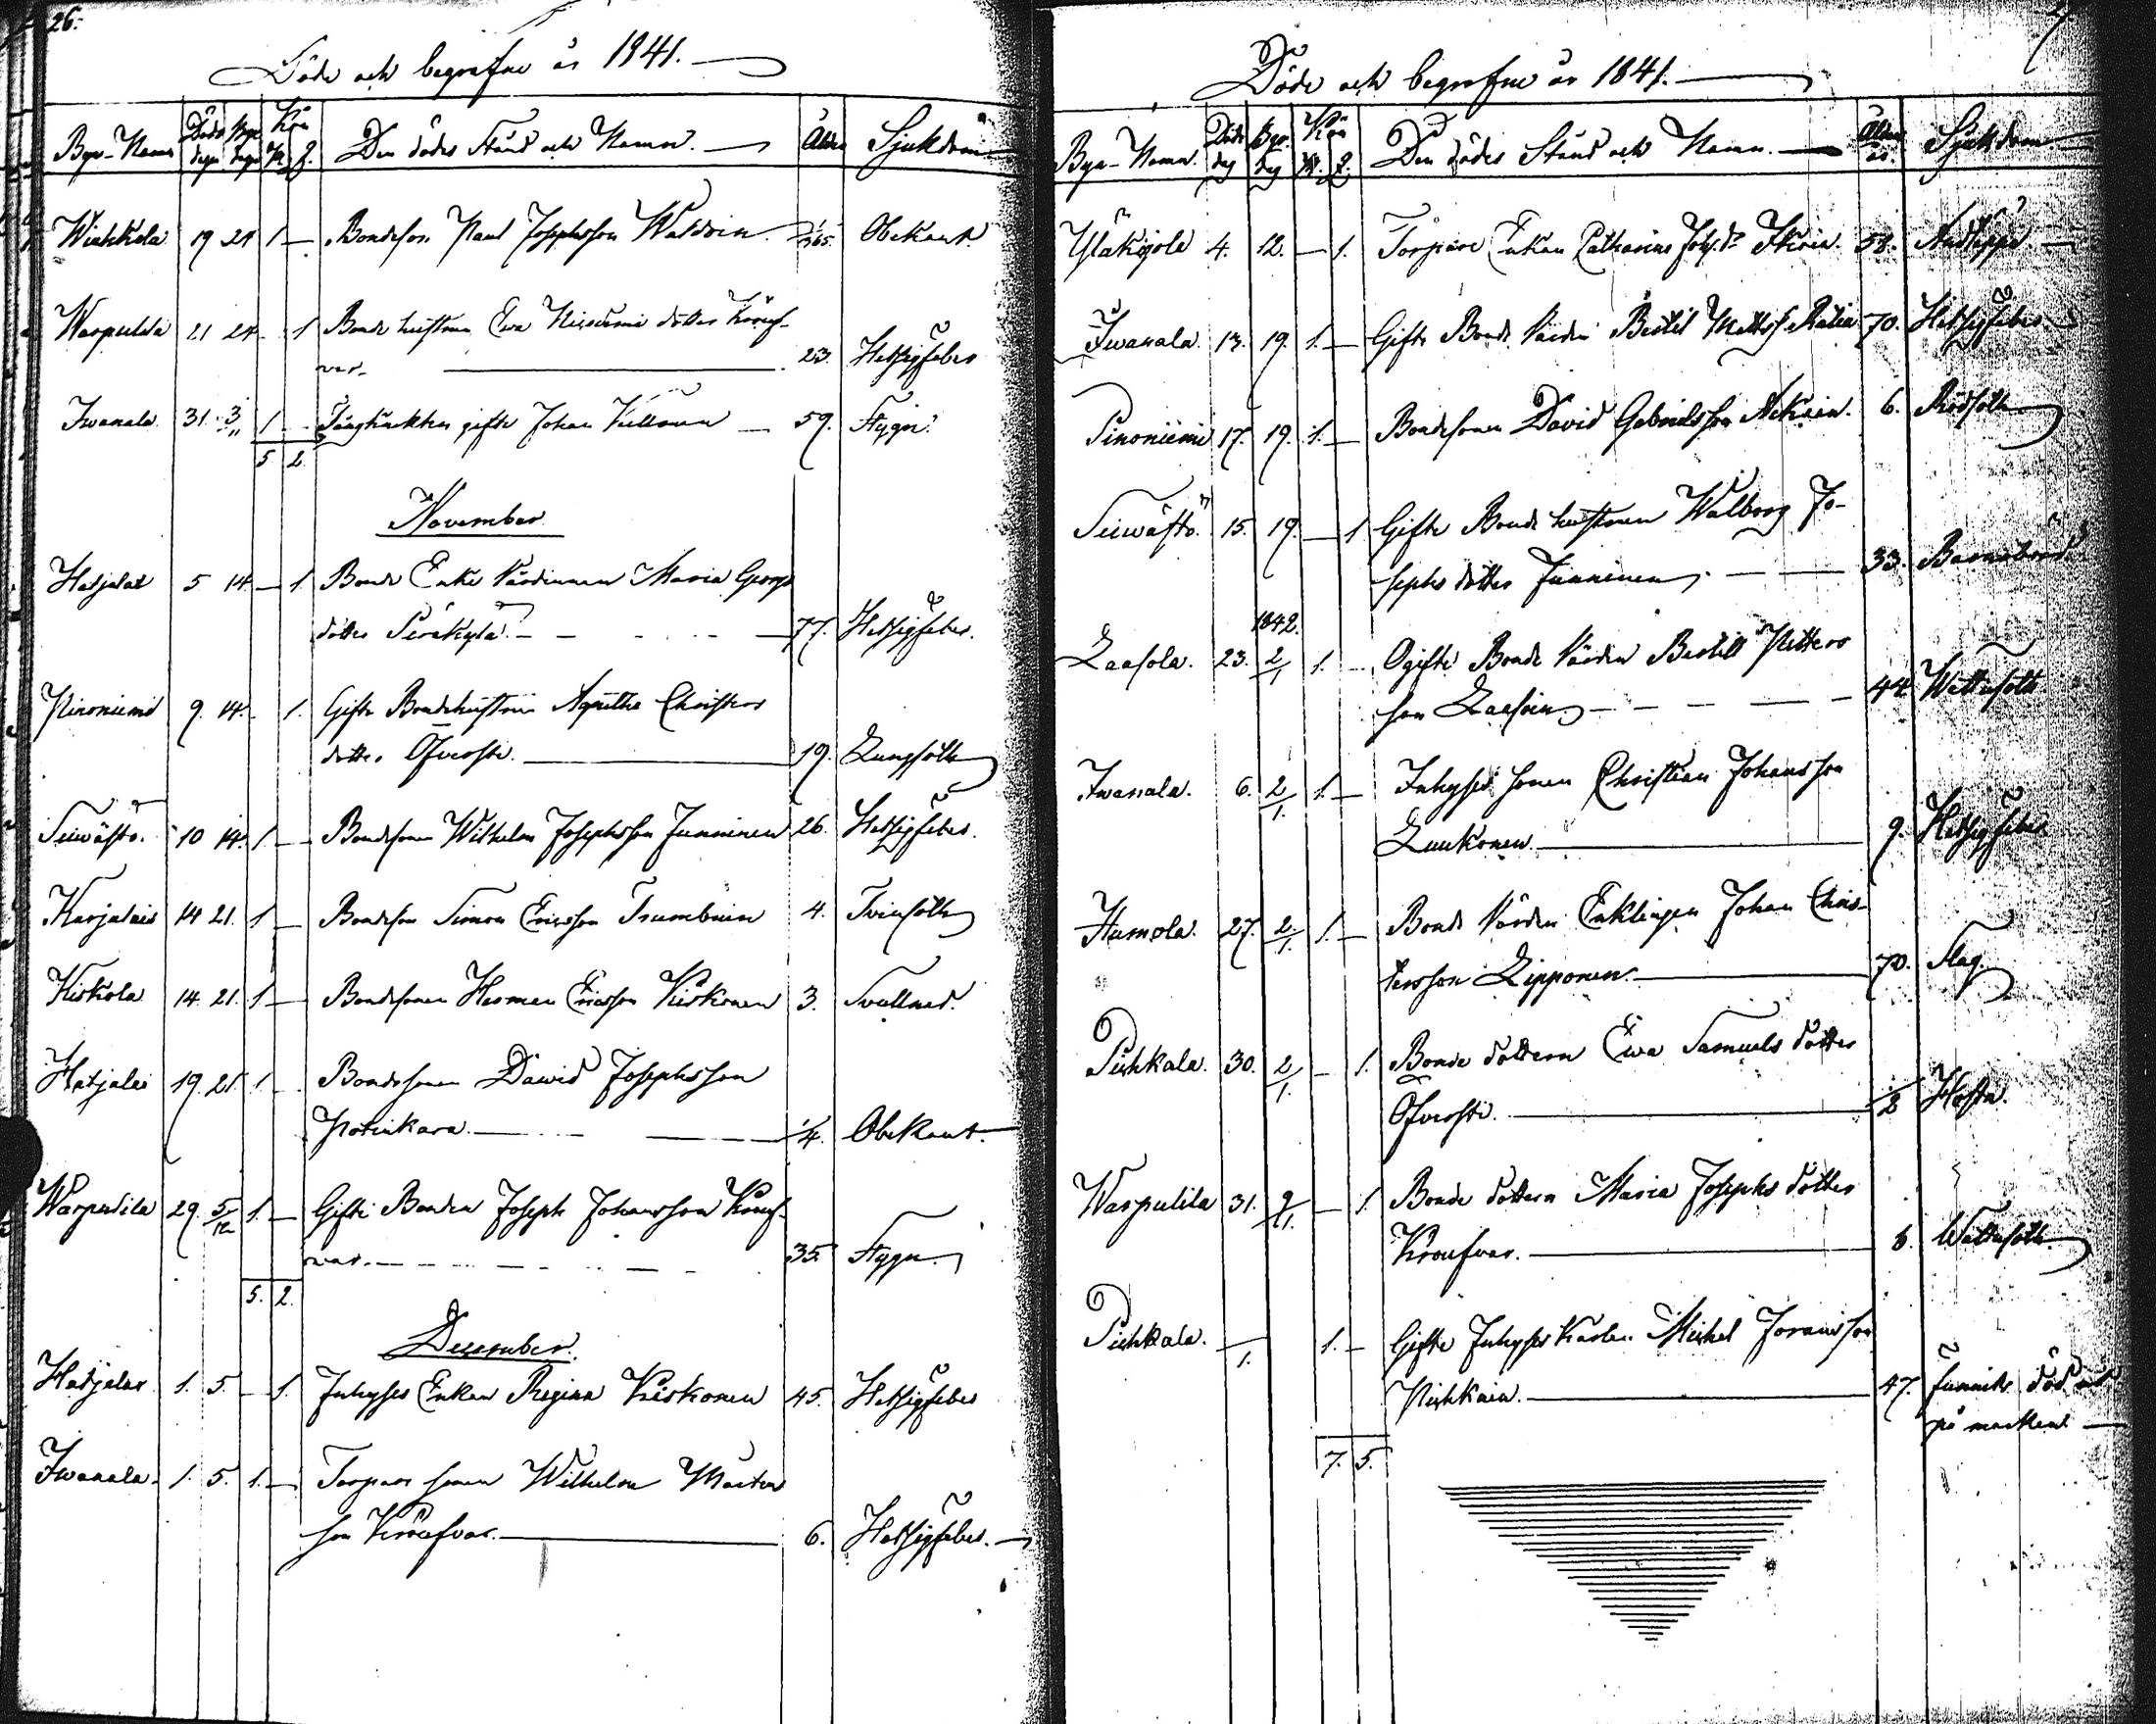 26.
Döde och begrafne år 1841.
Bya-Namn Döds dagn Begr. dagn Kön M. Q. Den dödes Stånd och Namn. Ålder Sjukdom
Wiahkola 19 24 1 — Bondeson Paul Josephsson Waldoin 1/365 Obekant.
Warpulila 21 24 - 1 Bonde hustrun Ewa Nisodemi dotter Kronf-
var. 23. Hetsigfeber
Iwanala 31. 3/11 1 - gifte Johan Kullman 59. Stygn.
5 2
November
Hatjalax 5 14 — 1 Bonde Enke Värdinnan Maria Georgs
dotter Peräkylä 77. Hetsigfeber.
Pinoniemi 9. 14. - 1. Gifte Bondehustrun Agnetha Christers
dotter Öfversti. 19. Lungsotn
Seiwästö. 10 14. 1 — Bondesonen Wilhelm Josephsson Junninen 26. Hetsigfeber.
Karjalais 14 21. 1 — Bondeson Simon Ericsson 4. Tvinsotn
Kiskola 14. 21. 1 — Bondesonen Herman Ericsson Kiiskonen 3. Svullnad.
Hatjalax 19. 21. 1 - Bondesonen David Josephsson
Potinkara 1/4. Obekant.
Warpulila 29. 5/12 1. — Gifte Bonden Joseph Johansson Kronf-
var. 35. Stygn.
5. 2.
December.
Hatjalax 1. 5. — 1. Inhyses Enkan Regina Kiiskonen 45. Hetsigfeber
Iwanala. 1. 5. 1. — Torpare sonen Wilhelm Mårten
son Kronfvar. 6. Hetsigfeber.
Döde och begrafne år 1841.
Bya-Namn. Döds dag Begr. dag Kön M. Q. Den dödes Stånd och Namn. Ålder år. Sjukdom
Yläkyjola 4. 12. — 1. Torpare Enkan Catharina Johsd:r 58. Andtäppa.
Iwanala. 13. 19. 1. — Gifte Bonde Värden Bertil Matts s. Rätin 70. Hetsigfeber.
Pinoniemi 17. 19. 1. — Bondesonen David Gabrielsson 6. Rödsotn
Seiwästö. 15. 19. — 1 Gifte Bonde hustrun Walborg Jo-
sephs dotter Junninen. 33. Barnsbörd.
1842.
Laasola. 23. 2/1 1. - Ogifte Bonde Värden Bertill Petters
son Laasoin 44. Wattusotn
Iwanala. 6. 2/1. 1. — Inhyses sonen Christian Johansson
Luukonen. 9. Hetsigfeber
Humola. 27. 2/1. 1. — Bonde Värden Enklingen Johan Chris-
tersson Lipponen. 70. Slag.
Pihkala. 30. 2/1. - 1. Bonde dottern Ewa Samuels dotter
Öfversti. 1/2 Hosta.
Warpulila 31. 9/1. — 1. Bonde dottern Maria Josephs dotter
Kronfvar. 6. Wattusotn.
Pihkala. —/1. 1. — Gifte Inhyses Karlen Michel Joransson
Pihkain. 47. funnits död
på marken.
7. 5.